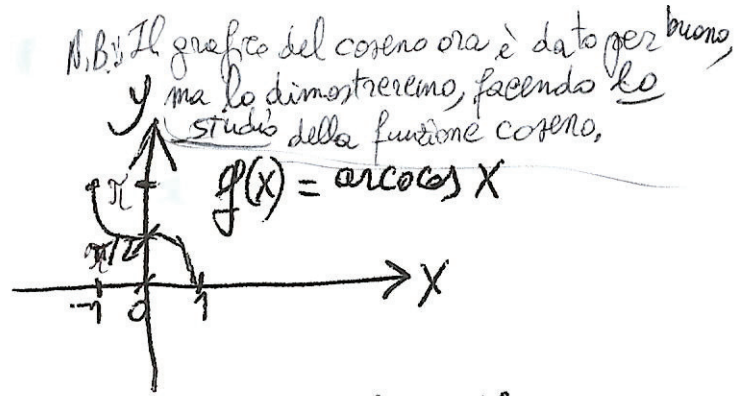 N.B.: Il grafico del coseno ora è dato per buono,
ma lo dimostreremo, facendo lo
studio della funzione coseno.
y
π
g(x) = arcocos x
π/2
x
-1 0 1